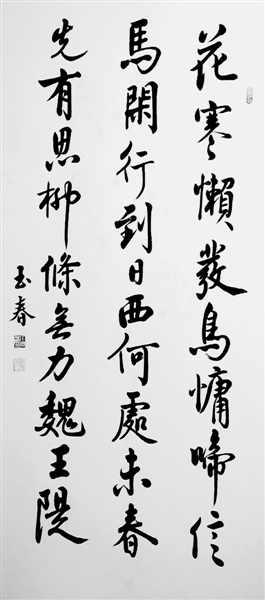 花寒懶發鳥慵啼信
馬閑行到日西何處未春
先有思柳條無力魏王隄
玉春